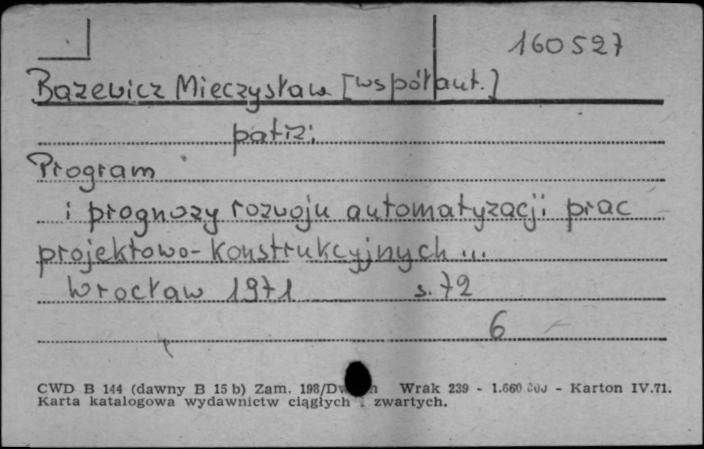 160527
Bazewicz Mieczysław [współaut.]
patrz:
Program
i prognozy rozwoju automatyzacji prac
projektowo-konstrukcyjnych ...
Wrocław 1971 s. 72
6
CWD B 144 (dawny B 15 b) Zam. 198/ Wrak 239 - 1.660 - Karton IV.71.
Karta katalogowa wydawnictw ciągłych zwartych.